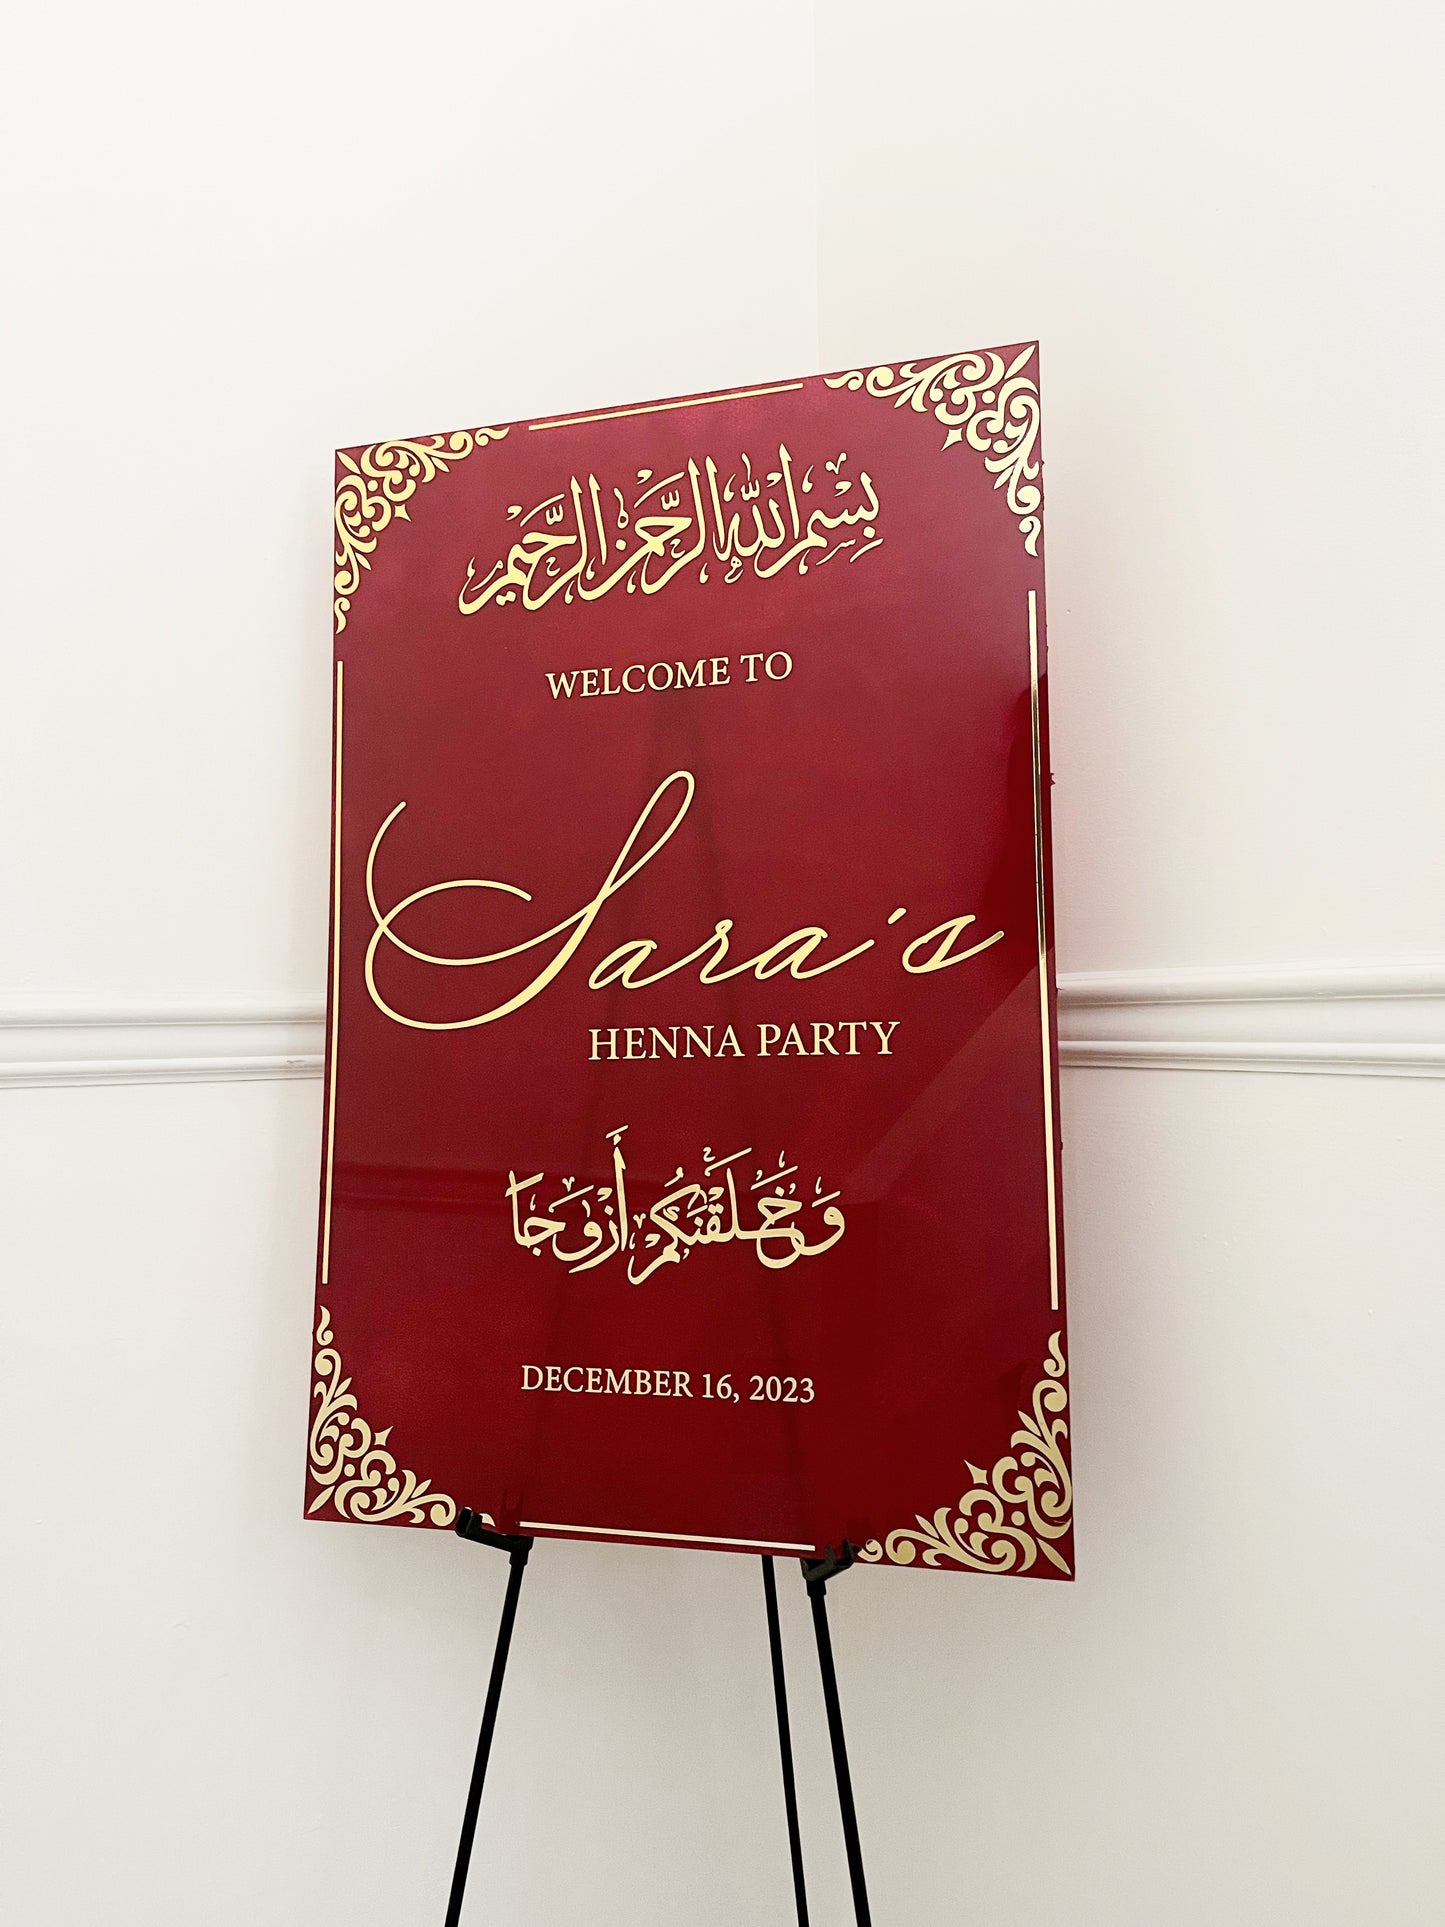 بِسْمِ اللَّهِ الرَّحْمَنِ الرَّحِيمِ
WELCOME TO
Sara's
HENNA PARTY
وَخَلَقْنَكُمْ أَزْوَجًا
DECEMBER 16, 2023